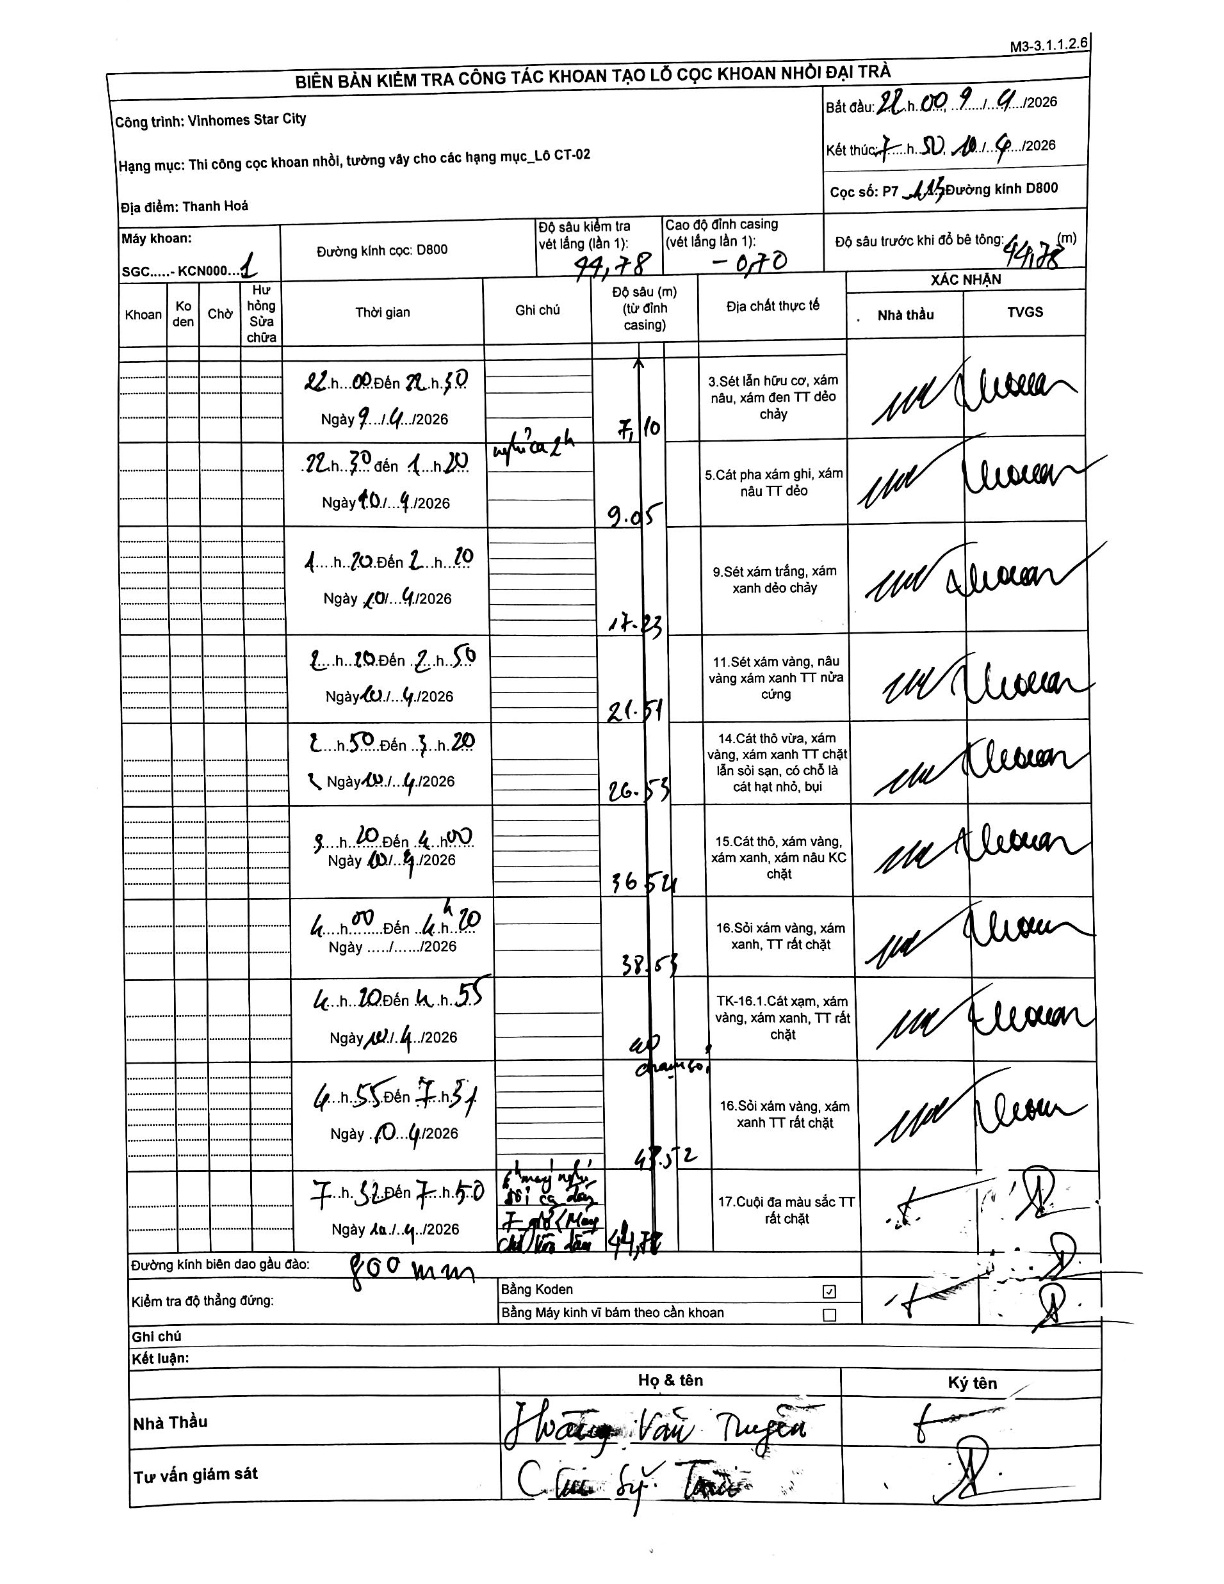 M3-3.1.1.2.6
BIÊN BẢN KIỂM TRA CÔNG TÁC KHOAN TẠO LỖ CỌC KHOAN NHỒI ĐẠI TRÀ
Công trình: Vinhomes Star City
Bắt đầu: 22.h.00, 9../..4../2026
Hạng mục: Thi công cọc khoan nhồi, tường vây cho các hạng mục_Lô CT-02
Kết thúc: 7..h.50, 10./..4../2026
Địa điểm: Thanh Hoá
Cọc số: P7 Đường kính D800
Máy khoan:
SGC.....- KCN000...1
Đường kính cọc: D800
Độ sâu kiểm tra
vét lắng (lần 1):
44,78
Cao độ đỉnh casing
(vét lắng lần 1):
- 0,70
Độ sâu trước khi đổ bê tông: 44,78 (m)
Khoan
Ko
den
Chờ
Hư
hỏng
Sửa
chữa
Thời gian
Ghi chú
Độ sâu (m)
(từ đỉnh
casing)
Địa chất thực tế
XÁC NHẬN
Nhà thầu
TVGS
22.h...00.Đến 22.h.30
Ngày 9.../.4.../2026
7,10
3.Sét lẫn hữu cơ, xám
nâu, xám đen TT dẻo
chảy
22.h..30 đến 1...h.20
Ngày 10./...4/2026
nghỉ ca 2h
9.05
5.Cát pha xám ghi, xám
nâu TT dẻo
1....h..20.Đến 2...h..20
Ngày 10/...4/2026
17.23
9.Sét xám trắng, xám
xanh dẻo chảy
2....h..20.Đến .2..h..50
Ngày 10./...4/2026
21.51
11.Sét xám vàng, nâu
vàng xám xanh TT nửa
cứng
2...h.50.Đến ..3..h.20
Ngày 10./...4/2026
26.53
14.Cát thô vừa, xám
vàng, xám xanh TT chặt
lẫn sỏi sạn, có chỗ là
cát hạt nhỏ, bụi
3...h..20.Đến .4..h00
Ngày 10./...4/2026
36.54
15.Cát thô, xám vàng,
xám xanh, xám nâu KC
chặt
4....h..00...Đến ..4.h.20
Ngày ...../....../2026
38.53
16.Sỏi xám vàng, xám
xanh, TT rất chặt
4...h..20Đến 4.h.55
Ngày 10./.4../2026
40
chạm sỏi
TK-16.1.Cát xạm, xám
vàng, xám xanh, TT rất
chặt
4...h..55.Đến 7.h.31
Ngày .10...4/2026
43.52
16.Sỏi xám vàng, xám
xanh TT rất chặt
7..h..32Đến 7..h.50
Ngày 10./..4./2026
44,78
17.Cuội đa màu sắc TT
rất chặt
Đường kính biên dao gầu đào: 800 mm
Kiểm tra độ thẳng đứng:
Bằng Koden ☑
Bằng Máy kinh vĩ bám theo cần khoan ☐
Ghi chú
Kết luận:
Họ & tên
Ký tên
Nhà Thầu
Hoàng Văn Tuyển
Tư vấn giám sát
Sỹ